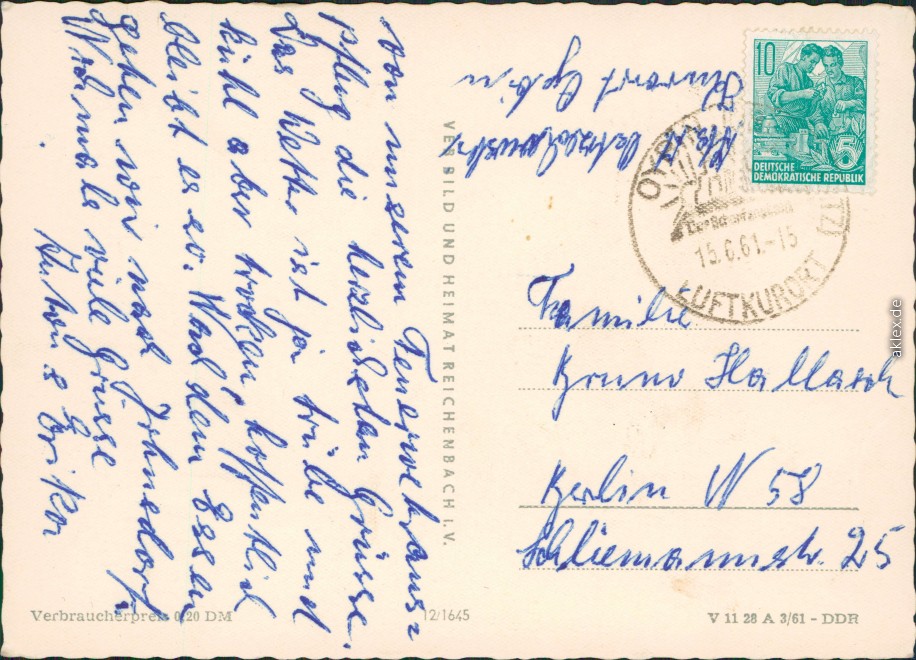 von unserem Ferienhaus=
pflug die herzlichsten Grüsse.
Das Wetter ist ja trübe und
kühl aber trocken, hoffentlich
bleibt es so. Nach dem Essen
gehen wir nach Johnsdorf.
viele Grüsse
Erika
Kurort Oybin
VEB BILD UND HEIMAT REICHENBACH I. V.
10
5
DEUTSCHE
DEMOKRATISCHE REPUBLIK
15.6.61.-15
LUFTKURORT
Familie
Bruno Hallasch
Berlin N 58
Schliemannstr. 25
Verbraucherpreis 0,20 DM
12/1645
V 11 28 A 3/61 - DDR
aklex.de